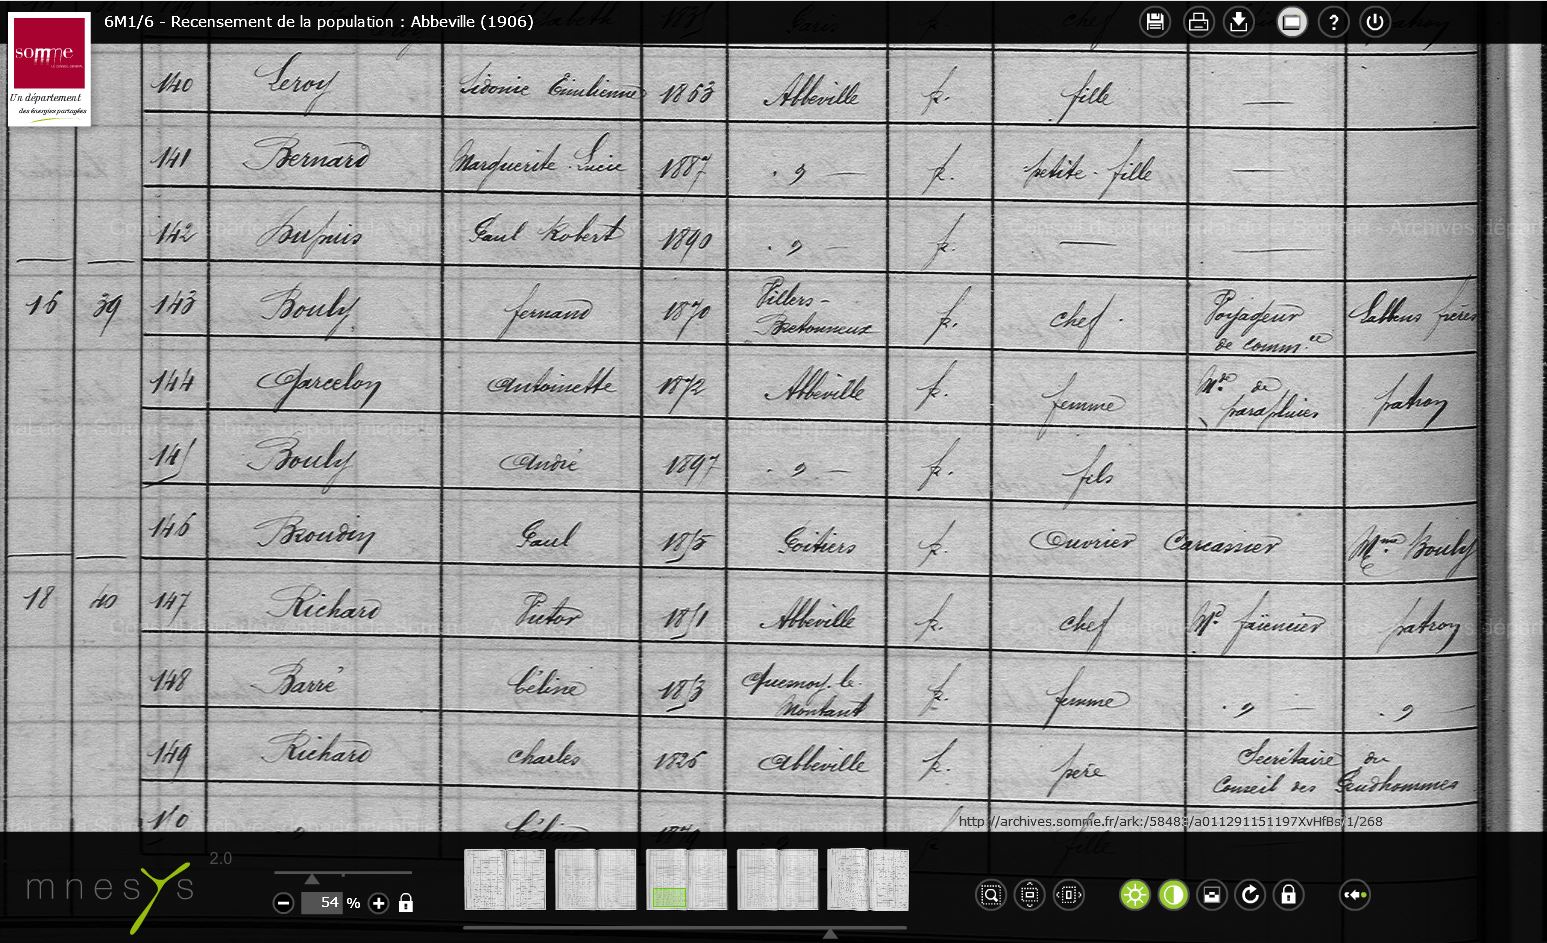 6M1/6 - Recensement de la population : Abbeville (1906)
somme
Un département
des énergies partagées
140 Leroy Sidonie Emilienne 1863 Abbeville f. fille —
141 Bernard Marguerite Lucie 1887 . " — f. petite-fille —
142 Dupuis Paul Robert 1890 . " — f. — —
16 39 143 Bouly fernand 1870 Villers-Bretonneux f. chef Voyageur de comm.ce frères
144 Antoinette 1872 Abbeville f. femme Mde de parapluies patron
145 Bouly André 1897 . " — f. fils
146 Broudin Paul 1875 Poitiers f. Ouvrier Carcassier Mme Bouly
18 40 147 Richard Victor 1851 Abbeville f. chef Md faïencier patron
148 Barré Céline 1853 Quesnoy-le-Montant f. femme . " — . " —
149 Richard charles 1826 Abbeville f. père Secrétaire du Conseil des Prudhommes
150 Céline fille
http://archives.somme.fr/ark:/58483/a011291151197XvHfBs/1/268
mnesys 2.0
54 %